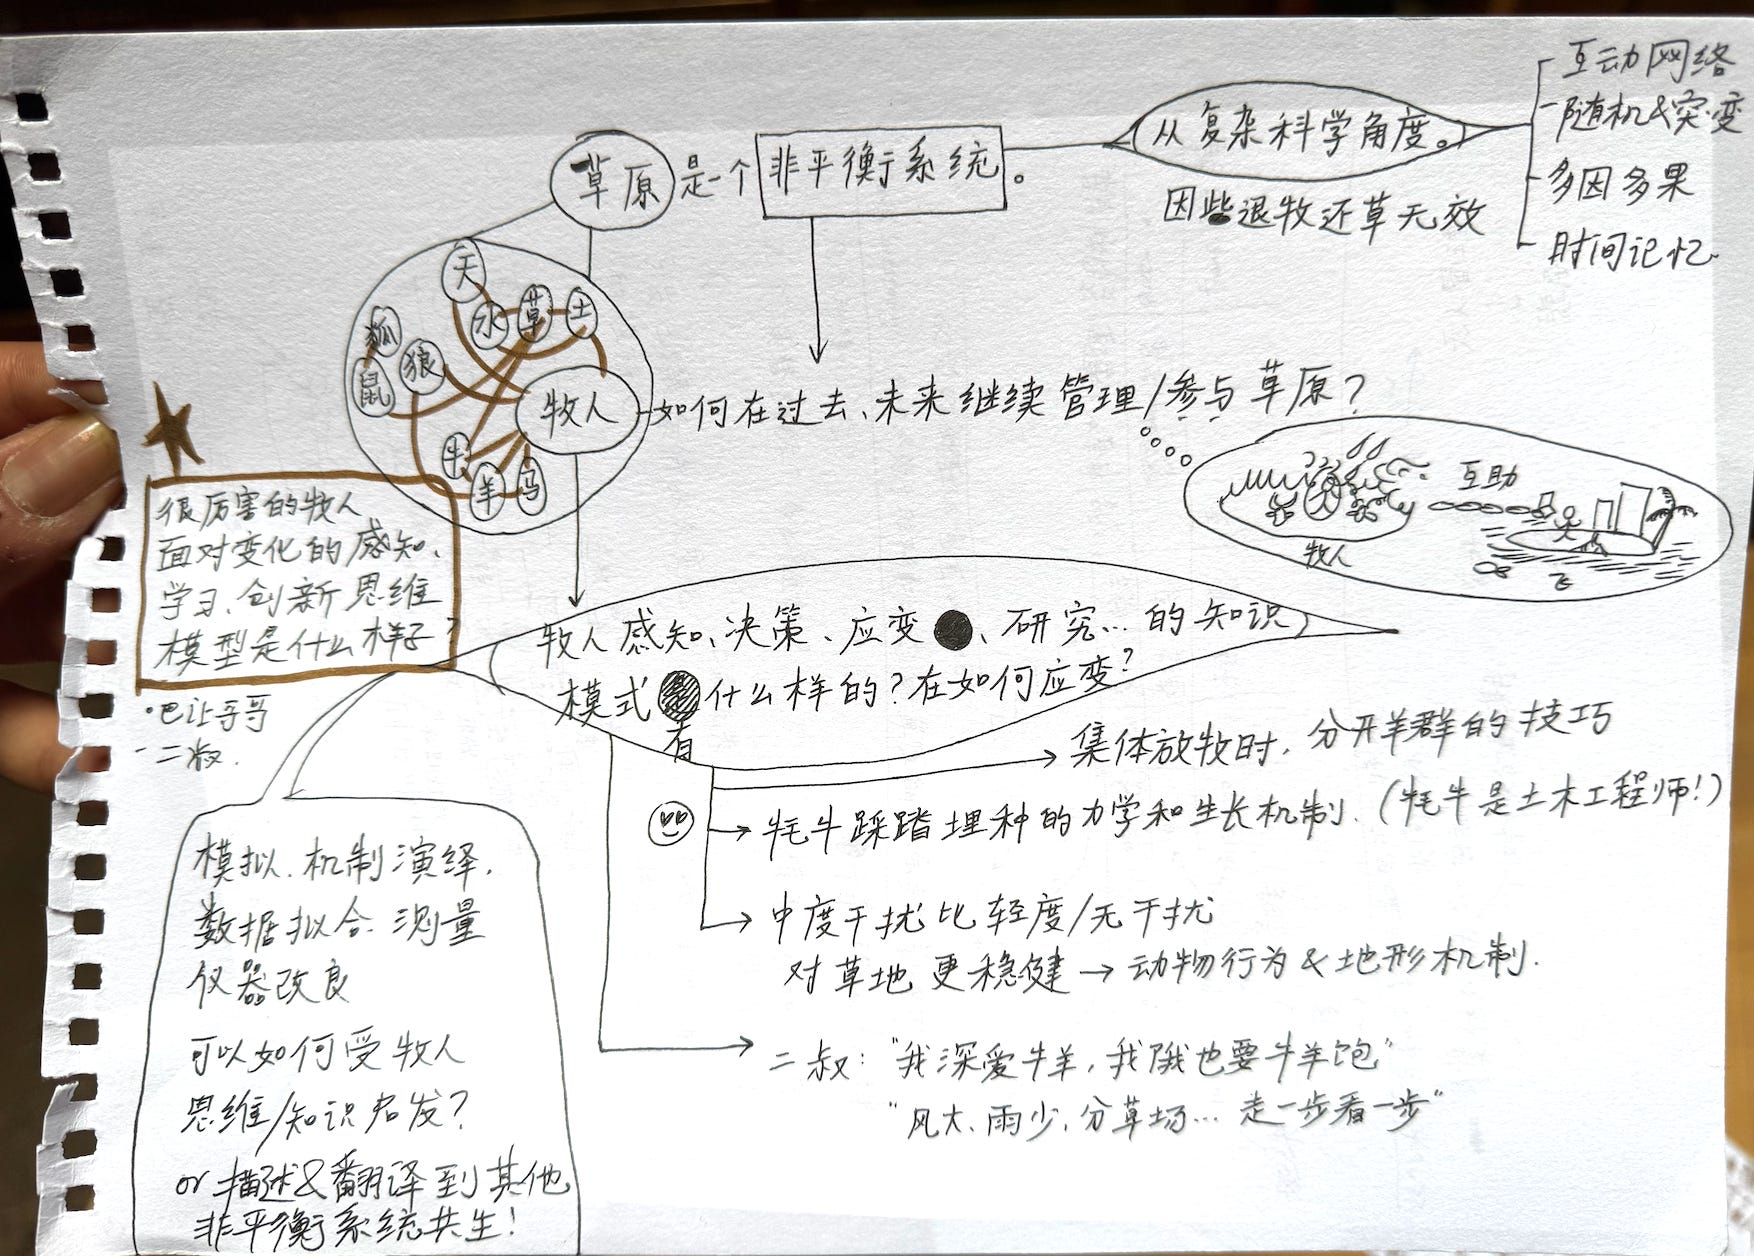 草原是一个非平衡系统。
从复杂科学角度。
因些退牧还草无效
互动网络
-随机&突变
多因多果
时间记忆.
天
水
草
土
狐
狼
鼠
牧人
牛
羊
马
如何在过去、未来继续管理/参与草原?
互助
牧人
很厉害的牧人
面对变化的感知、
学习、创新思维
模型是什么样子?
·巴让哥哥
- 二叔.
牧人感知、决策、应变、研究...的知识
模式什么样的?在如何应变?
有
集体放牧时,分开羊群的技巧
牦牛踩踏埋种的力学和生长机制.(牦牛是土木工程师!)
中度干扰比轻度/无干扰
对草地更稳健→动物行为&地形机制.
二叔:"我深爱牛羊,我饿也要牛羊饱"
"风大、雨少,分草场...走一步看一步"
模拟.机制演绎.
数据拟合.测量
仪器改良
可以如何受牧人
思维/知识启发?
or 描述&翻译到其他
非平衡系统共生!